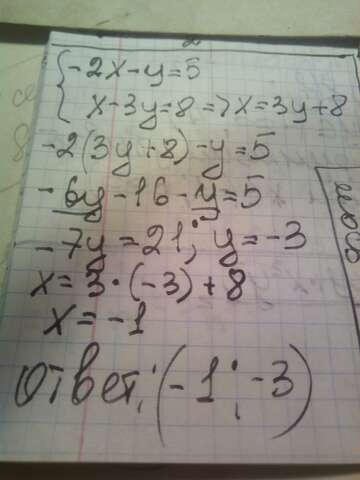 {-2x-y=5
x-3y=8 => x=3y+8
-2(3y+8)-y=5
-6y-16-y=5
-7y=21; y=-3
x=3·(-3)+8
x=-1
Ответ: (-1; -3)